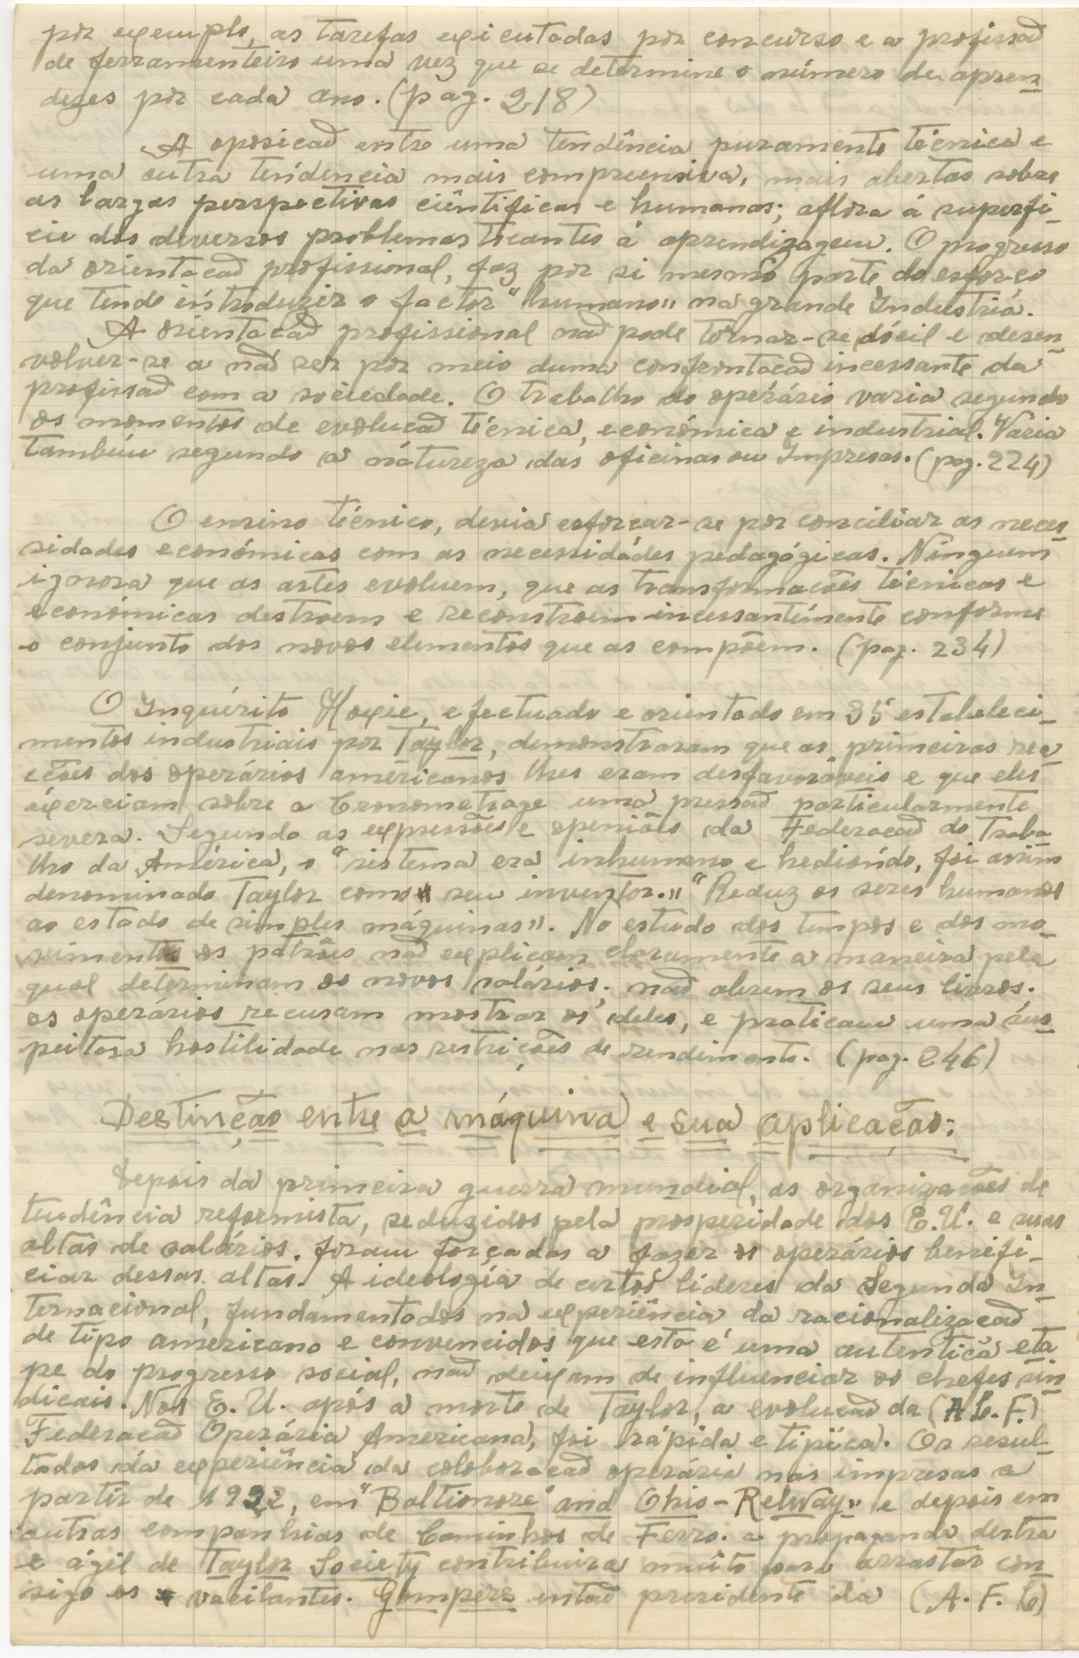 por exemplo, as tarefas executadas por concurso e a profissaõ
de ferramenteiro uma vez que se determine o número de apren
dezes por cada ano. (pag. 218)
A oposicaõ entre uma tendência puramente técnica e
uma outra tendencia mais compreensiva, mais abertas sobre
as largas perspectivas ciêntificas e humanas; aflora á superfi-
cie dos deversos problemas tocantes á aprendizagem. O progresso
da orientacaõ profissional, faz por si mesmo parte do esforço
que tende introduzir o factor "humano" na grande Industriá.
A orientacaõ profissional naõ pode tornar-se dócil e desen
volver-se a naõ ser por meio duma confrontacaõ incessante da
profissaõ com a sociedade. O trabalho do operário varia segundo
os momentos de evolucaõ técnica, económica e industrial. Varia
tambêm segundo a natureza das oficinas ou Impresas. (pag. 224)
O ensino técnico, devia esforcar-se por conciliar as neces
sidades económicas com as necessidades pedagógicas. Ninguem
ignora que as artes evoluem, que as transformacões técnicas e
económicas destroem e reconstroem incessantemente conforme
o conjunto dos novos elementos que as compõem. (pag. 234)
O Inquérito Hoxie, efectuado e orientado em 35 estabeleci-
mentos industriais por Taylor, demonstraram que as primeiras rea
cções dos operários americanos lhes eram desfavoráveis e que eles
exerciam sobre a Cronometrage uma pressaõ particularmente
severa. Segundo as expressões e openiões da Federacaõ do Traba
lho da América, o "sistema era inhumano e hediondo, foi assim
denominado Taylor como seu inventor." "Reduz os seres humanos
ao estado de simples máquinas". No estudo dos tempos e dos mo-
vimentos os patrões naõ explicam claramente a maneira pela
qual determinam os novos salários; naõ abrem os seus livros.
os operários recusam mostrar os deles, e praticam uma sus
peitosa hostilidade nas restricões de rendimento. (pag. 246)
Destinção entre a máquina e sua aplicação:
Depois da primeira guerra mundial, as organizacões de
tendência reformista, seduzidos pela prosperidade dos E.U. e suas
altas de salários. foram forçadas a fazer os operários benefi-
ciar dessas altas. A ideologia de certos líderes da Segunda In
ternacional, fundamentados na experiência da racionalizacaõ
de tipo americano e convencidos que esta é uma autentica eta
pe do progresso social, naõ deixam de influenciar os chefes sin
dicais. Nos E. U. após a morte de Taylor, a evolucaõ da (A.L.F.)
Federacaõ Operária Americana, foi rápida e tipica. Os resul-
tados da experiência da coloboracaõ operária nas impresas a
partir de 1922, em "Baltionore and Ohio-Relway" e depois em
outras companhias de Caminhos de Ferro. a propaganda destra
e ágil de Taylor Society contribuira muito para arrastar con
sigo os vacilantes. Gompers entaõ presidente da (A. F. L)